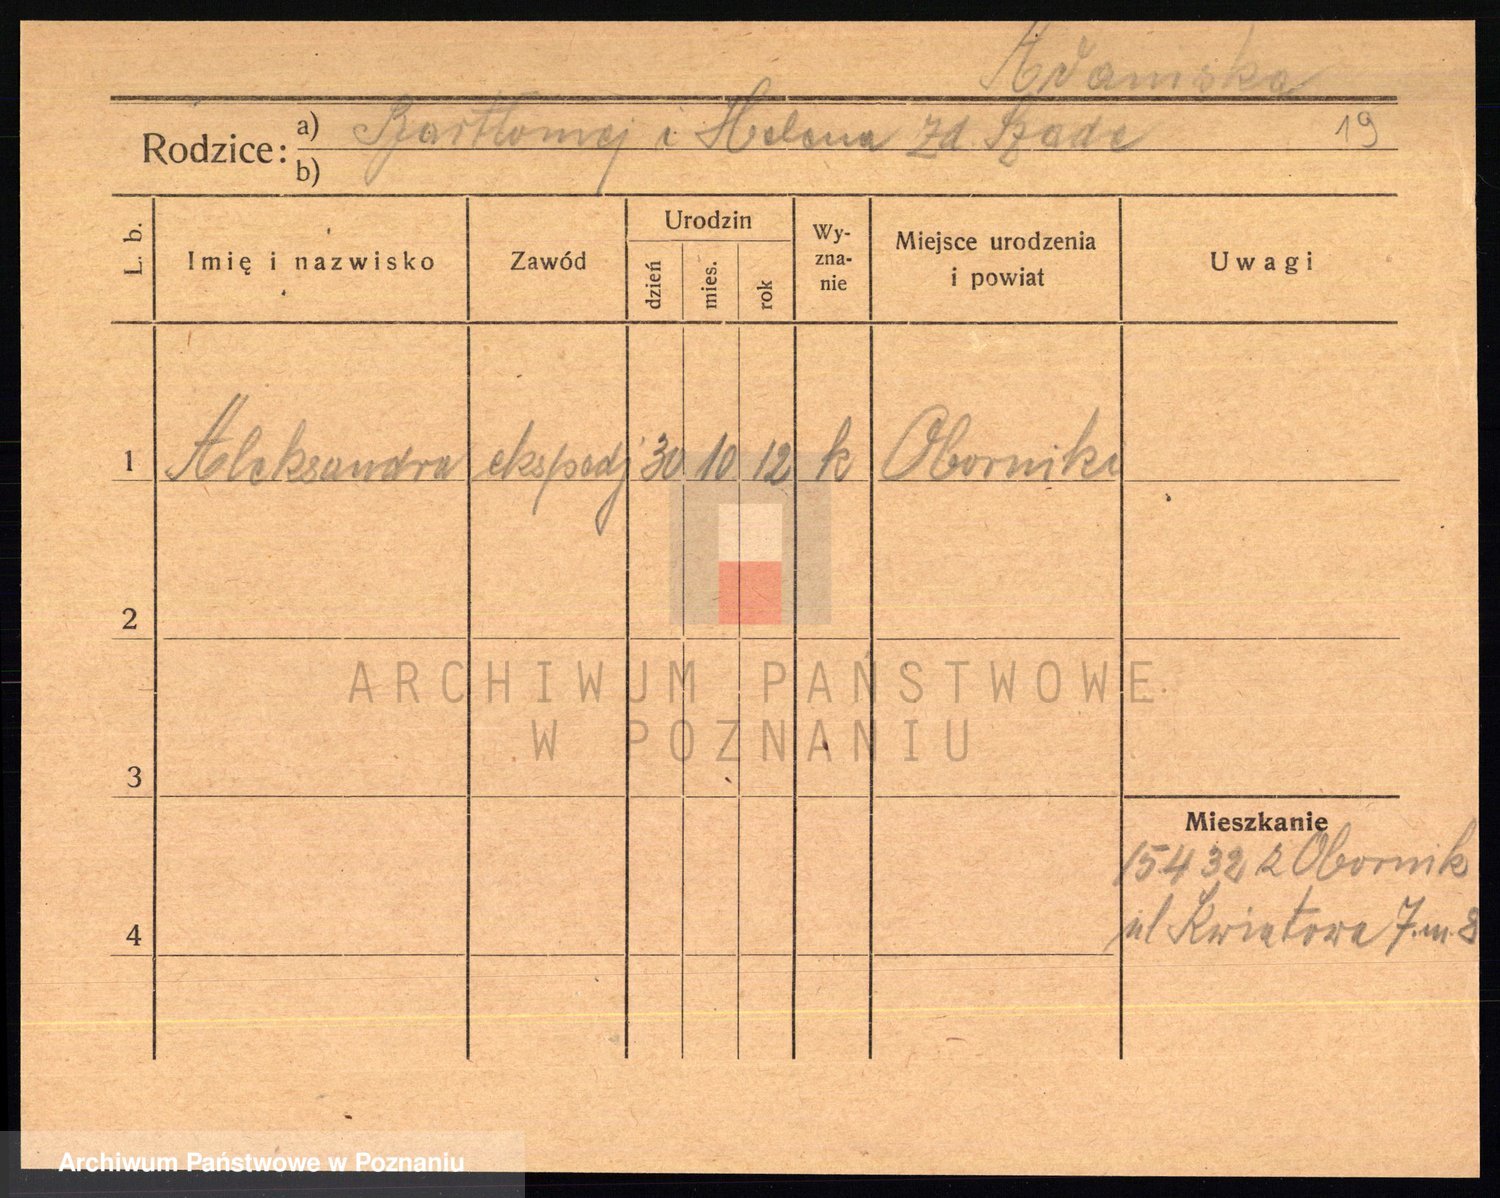 Adamska
Rodzice: a) Bartłomiej i Helena zd. Szade 19
b)
L. b. Imię i nazwisko Zawód Urodzin dzień mies. rok Wy-zna-nie Miejsce urodzenia i powiat Uwagi
1 Aleksandra ekspedj 30 10 12 k Oborniki
2
ARCHIWUM PAŃSTWOWE
W POZNANIU
3
Mieszkanie
15 4 32 z Obornik
ul Kwiatowa 7 m. 8
4
Archiwum Państwowe w Poznaniu